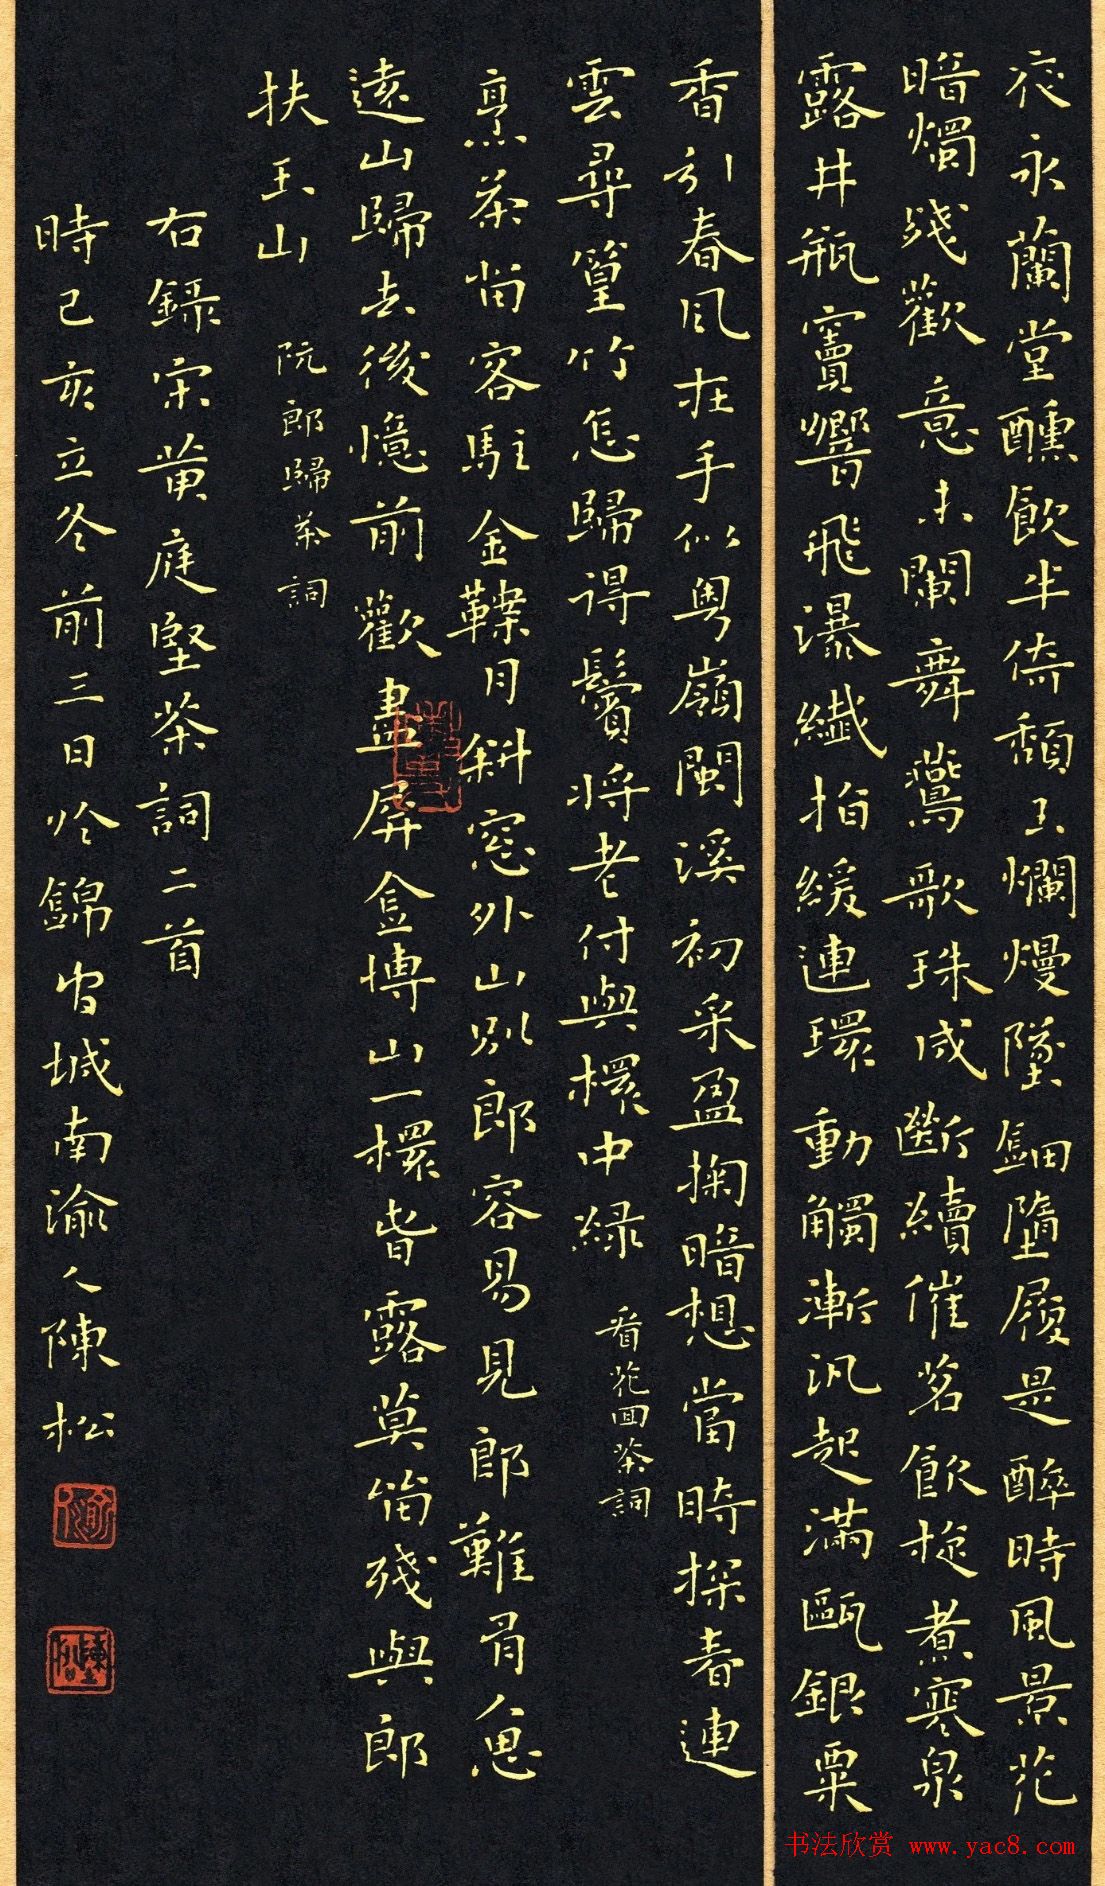 夜永蘭堂醺飲半倚頹玉爛熳墜鈿墮履是醉時風景花
暗燭殘歡意未闌舞鷰歌珠成斷續催茗飲旋煮寒泉
露井瓶竇響飛瀑纖指緩連環動觸漸汎起滿甌銀粟
香引春風在手似粤嶺閩溪初采盈掬暗想當時探春連
雲尋篁竹怎歸得鬢將老付與桮中緑 看花回茶詞
烹茶留客駐金鞍月斜窓外山別郎容易見郎難有人思
遠山歸去後憶前歡畫屏金博山一桮春露莫留殘與郎
扶玉山 阮郎歸茶詞
右録宋黄庭堅茶詞二首
時己亥立冬前三日於錦官城南渝人陳松
书法欣赏 www.yac8.com